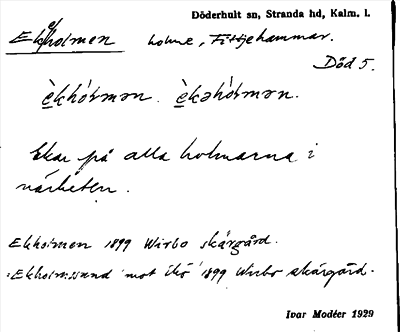 Döderhult sn, Stranda hd, Kalm. l.
Ekholmen holme, Fittjehammar.
Död 5.
èkhòlmən. èkəhòlmən.
Ekar på alla holmarna i
närheten.
Ekholmen 1899 Wirbo skärgård.
"Ekholmssund mot Ikö" 1899 Wirbo skärgård.
Ivar Modéer 1929